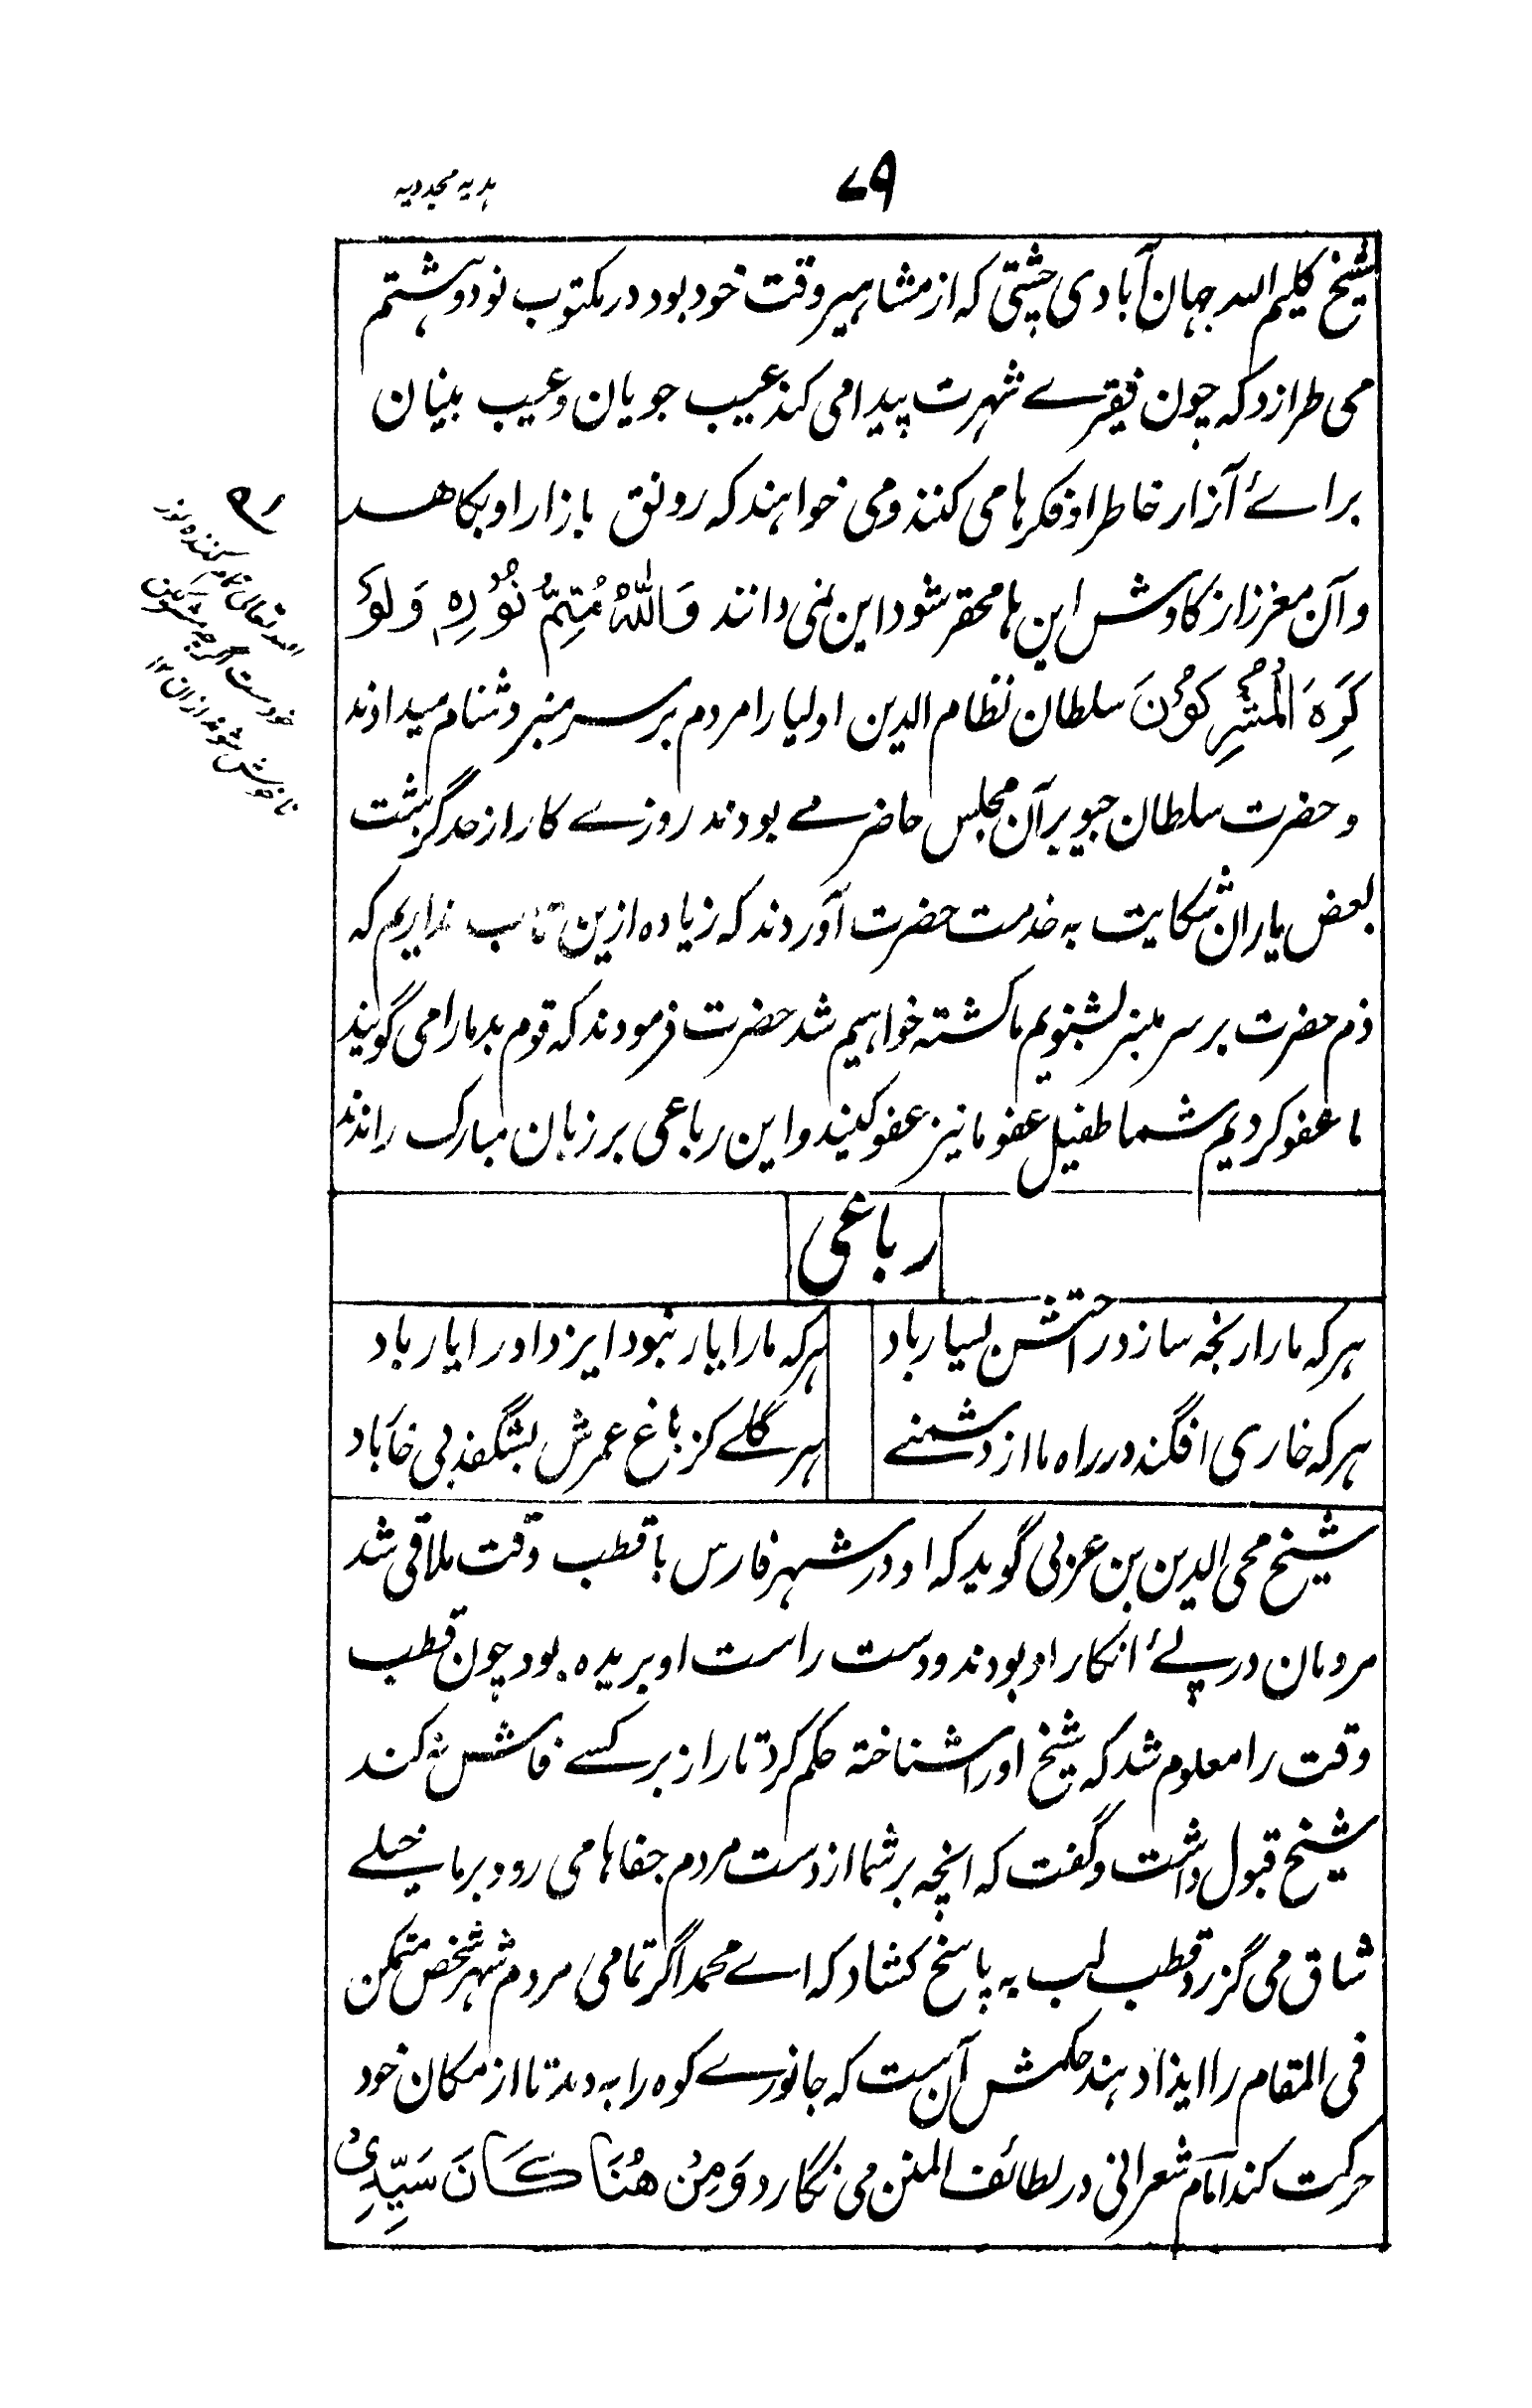 ۷۹
ہدیہ مجددیہ
شیخ کلیم اللہ جہان آبادی چشتی کہ از مشاہیر وقت خود بود در مکتوب نود و ہشتم
می طرازد کہ چون فقیرے شہرت پیدا می کند عیب جویان و عیب بینان
برائے آزار خاطر او فکرہا می کنند و می خواہند کہ رونق بازار او بکاہد
و آن معزز از کاوش این ہا محقر شود این نمی دانند وَاللّٰهُ مُتِمُّ نُوْرِهٖ وَلَوْ
كَرِهَ الْمُشْرِكُوْنَ سلطان نظام الدین اولیا را مردم بر سر منبر دشنام میدادند
و حضرت سلطان جیو بر آن مجلس حاضر مے بودند روزے کار از حد گزشت
بعض یاران شکایت بہ خدمت حضرت آوردند کہ زیادہ ازین تاب نداریم کہ
ذم حضرت بر سر منبر بشنویم ما کشتہ خواہیم شد حضرت فرمودند کہ قوم بد ما را می گویند
ما عفو کردیم شما طفیل عفو ما نیز عفو کنید و این رباعی بر زبان مبارک راندند
رباعی
ہر کہ ما را رنجہ سازد راحتش بسیار باد ہر کہ ما را یار نبود ایزد او را یار باد
ہر کہ خاری افگند در راہ ما از دشمنے ہر گلے کز باغ عمرش بشگفد بی خار باد
شیخ محی الدین بن عربی گوید کہ او در شہر فارس با قطب وقت ملاقی شد
مردمان در پئے انکار او بودند و دست راست او بریدہ بود چون قطب
وقت را معلوم شد کہ شیخ او را شناختہ حکم کرد تا راز بر کسے فاش نہ کند
شیخ قبول داشت و گفت کہ انچہ بر شما از دست مردم جفاہا می رود بر ما خیلے
شاق می گزرد قطب لب بہ پاسخ کشاد کہ اے محمد اگر تمامی مردم شہر شخص متمکن
فی المقام را ایذا دہند حکمش آن ست کہ جانورے کوہ را بہ دمد تا از مکان خود
حرکت کند امام شعرانی در لطائف المنن می نگارد وَمِنْ هُنَا كَانَ سَيِّدِىْ
اللہ تعالی تمام کنندہ نور
خودست اگرچہ مشرکین
ناخوش شوند ازان ۱۲